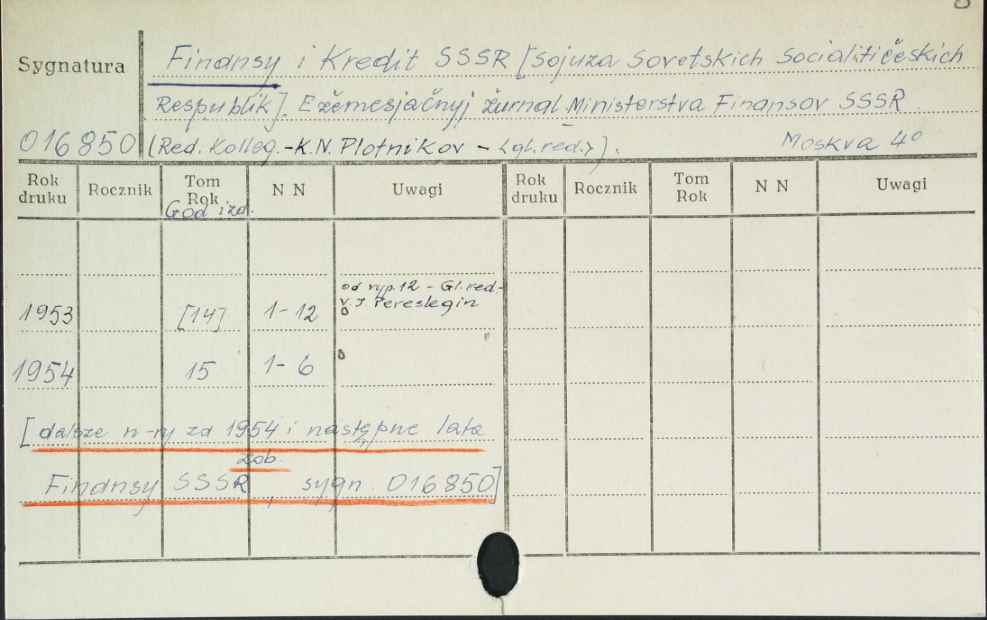 Sygnatura
Finansy i Kredit SSSR [Sojuza Sovetskich Socialitičeskich
Respublik]. Ežemesjačnyj žurnal Ministerstva Finansov SSSR
016850 (Red. Kolleg. - K.N. Plotnikov - <gl. red.>). Moskva 4°
Rok druku Rocznik Tom Rok N N Uwagi Rok druku Rocznik Tom Rok N N Uwagi
God izd.
od vyp. 12 - Gl. red. -
1953 [14] 1-12 V. I Pereslegin
1954 15 1-6
[dalsze n-ry za 1954 i następne lata
zob.
Finansy SSSR, sygn. 016850]